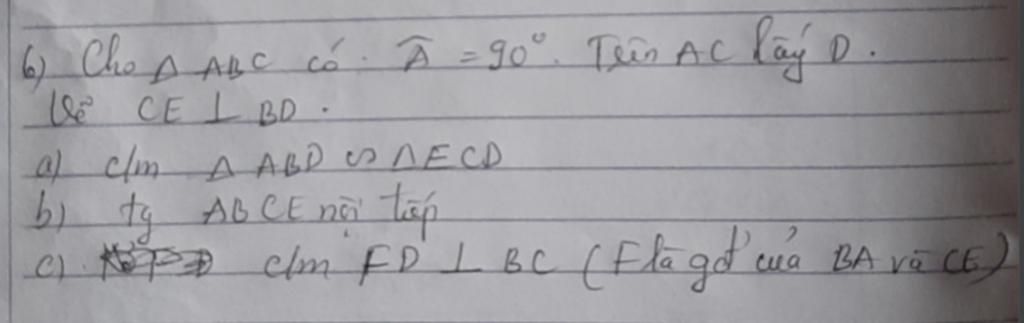 6) Cho Δ ABC có. Â = 90°. Trên AC lấy D.
Vẽ CE ⊥ BD.
a) c/m Δ ABD ∽ ΔECD
b) tg ABCE nội tiếp
c) c/m FD ⊥ BC (F là gđ của BA và CE)